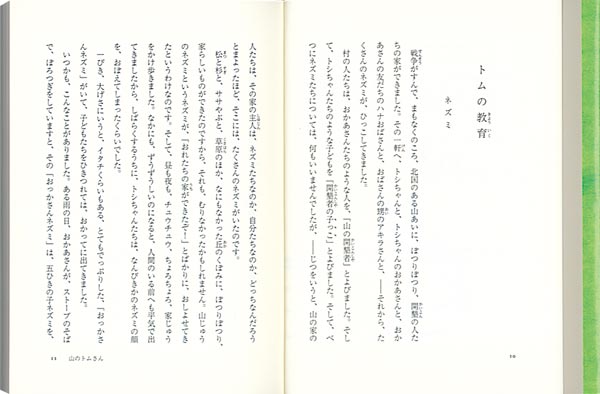 トムの教育
ネズミ
戦争がすんで、まもなくのころ、北国のある山あいに、ぽつりぽつり、開墾の人た
ちの家ができました。その一軒へ、トシちゃんと、トシちゃんのおかあさんと、おか
あさんの友だちのハナおばさんと、おばさんの甥のアキラさんと、――それから、た
くさんのネズミが、ひっこしてきました。
村の人たちは、おかあさんたちのような人を、「山の開墾者」とよびました。そし
て、トシちゃんたちのような子どもを「開墾者の子っこ」とよびました。そして、べ
つにネズミたちについては、何もいいませんでしたが、――じつをいうと、山の家の
10
人たちは、その家の主人は、ネズミたちなのか、自分たちなのか、どっちなんだろう
とまよったほど、そこには、たくさんのネズミがいたのです。
松と杉と、ササやぶと、草原のほか、なにもなかった丘のくぼみに、ぽつりぽつり、
家らしいものができたのですから、それも、むりなかったかもしれません。山じゅう
のネズミというネズミが、「おれたちの家ができたぞ!」とばかりに、おしよせてき
たというわけなのです。そして、昼も夜も、チュウチュウ、ちょろちょろ、家じゅう
をかけ歩きました。なかにも、ずうずうしいのになると、人間のいる前へも平気で出
てきましたから、しばらくするうちに、トシちゃんたちは、なんびきかのネズミの顔
を、おぼえてしまったくらいでした。
一ぴき、大げさにいうと、イタチくらいもある、とてもでっぷりした、「おっかさ
んネズミ」がいて、子どもたちをひきつれては、おかってに出てきました。
いつかも、こんなことがありました。ある雨の日、おかあさんが、ストーブのそば
で、ぼろつぎをしていますと、その「おっかさんネズミ」は、五ひきの子ネズミを、
11 山のトムさん